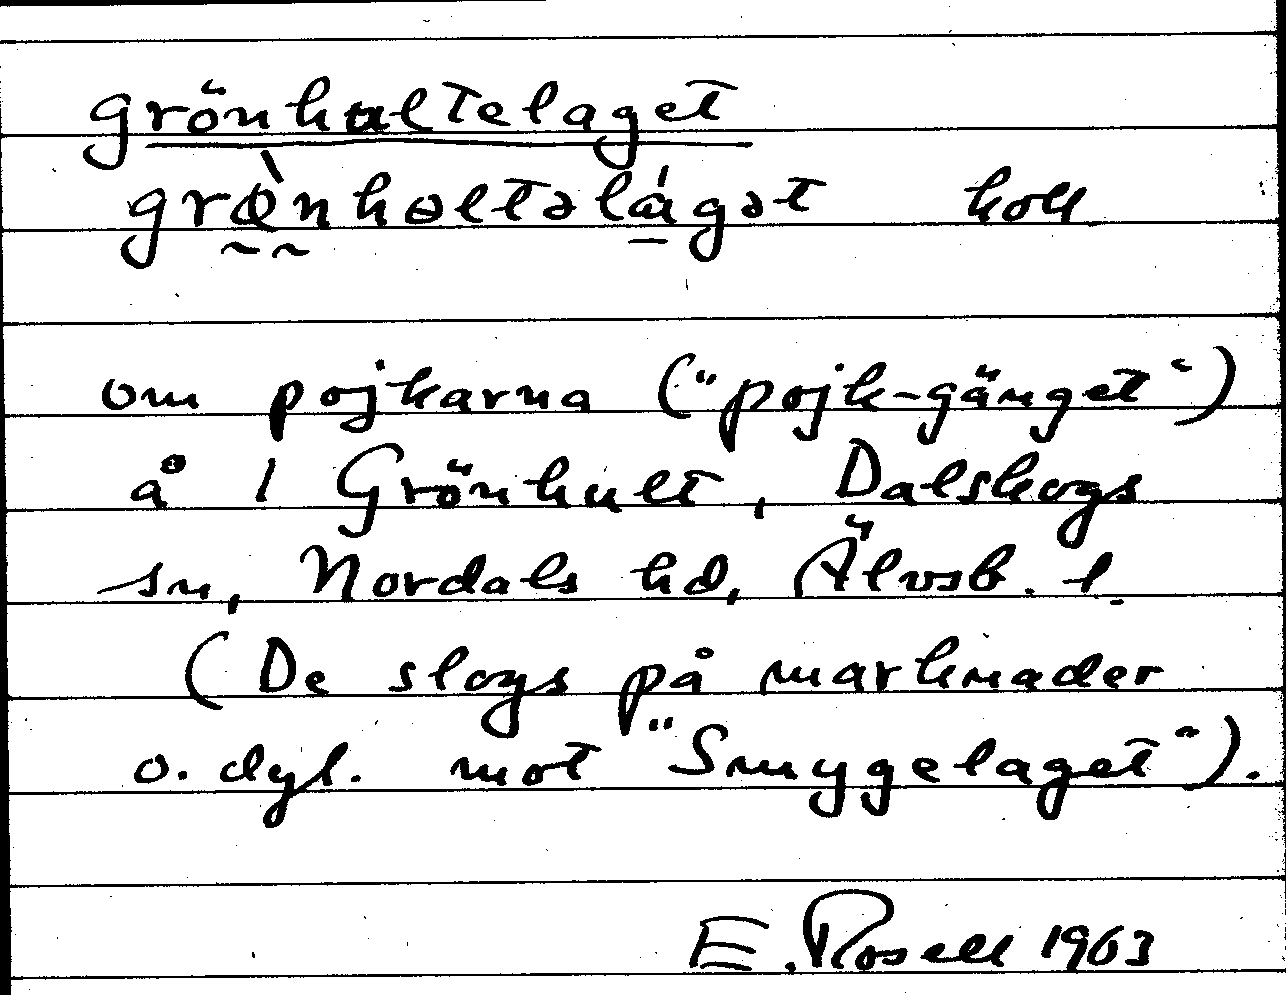 grönhultelaget
grø̀nhɵltəlágət koll
om pojkarna ("pojk-gänget")
å 1 Grönhult, Dalskogs
sn, Nordals hd, Älvsb. l.
(De slogs på marknader
o. dyl. mot "Smyggelaget").
E. Rosell 1963